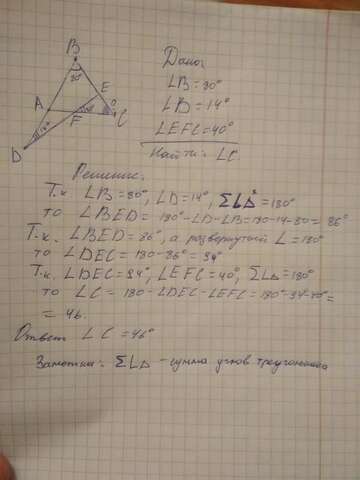 B
80°
E
A
F
40°
C
14°
D
Дано:
∠B=80°
∠D=14°
∠EFC=40°
Найти: ∠C
Решение.
Т.к ∠B=80°, ∠D=14°, Σ∠Δ=180°
то ∠BED = 180°-∠D-∠B=180-14-80= 86°
Т-к. ∠BED=86°, а развернутый ∠=180°
то ∠DEC= 180-86°= 94°
Т.к. ∠DEC=94°, ∠EFC=40°, Σ∠Δ=180°
то ∠C = 180-∠DEC-∠EFC=180°-94-40°=
= 46.
Ответ ∠C =46°
Заметки: Σ∠Δ -сумма углов треугольника